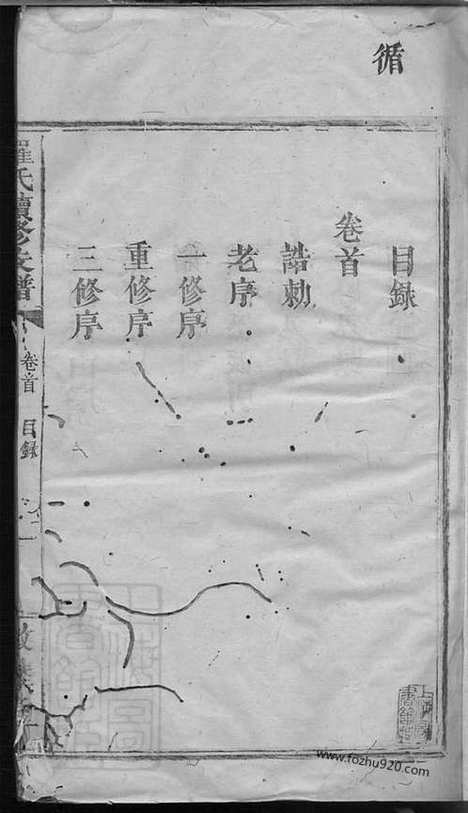 循
目錄
卷首
誥勅
老序
一修序
重修序
三修序
羅氏續修族譜
卷首 目錄
一
www.fozhu920.com